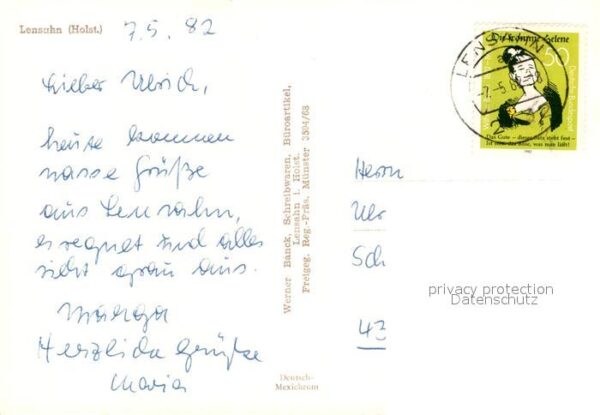 Lensahn (Holst.)
7.5.82
Lieber Ulrich,
heute kommen
nasse Grüße
aus Lensahn,
es regnet und alles
sieht grau aus.
Marga
Herzliche Grüße
Maria
Werner Banck, Schreibwaren, Büroartikel,
Lensahn i. Holst.
Freigeg. Reg.-Präs. Münster 2504/68
Deutsch-
Mexichrom
Die fromme Helene
50
Deutsche Bundespost
Das Gute – dieser Satz steht fest –
Ist stets das Böse, was man läßt!
LENSAHN
Herrn
Ulr
Sch
43
privacy protection
Datenschutz